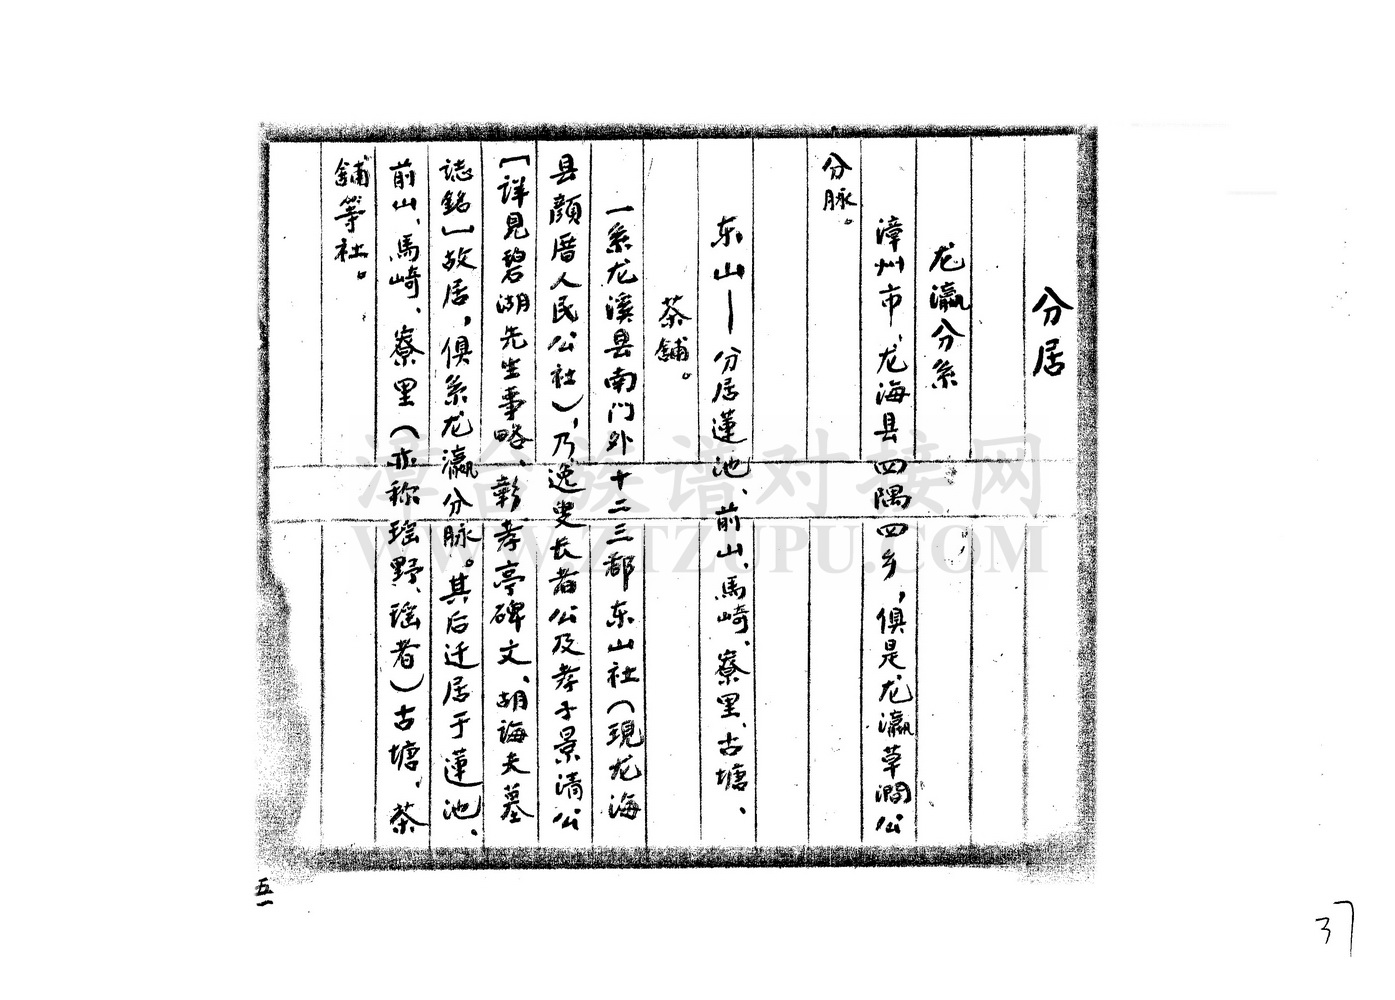 分居
龙瀛分系
漳州市、龙海县四隅四乡，俱是龙瀛草澗公
分脉。
东山—分居蓮池、前山、馬崎、寮里、古塘、
茶鋪。
一系龙溪县南门外十二三都东山社（現龙海
县顔厝人民公社），乃逸叟长者公及孝子景清公
［详見碧湖先生事略、彰孝亭碑文、胡海夫墓
誌銘］故居，俱系龙瀛分脉。其后迁居于蓮池、
前山、馬崎、寮里（亦称瑶野、瑶者）古塘、茶
鋪等社。
五一
37
漳台族谱对接网
WWW.ZTZUPU.COM